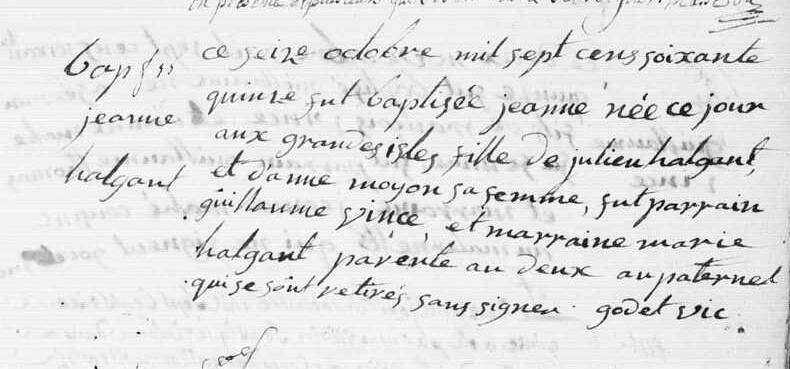 en presence
ce seize octobre mil sept cens soixante
bapt
quinze fut baptisée jeanne née ce jour
jeanne
aux grandes isles fille de julien halgant,
halgant
et danne moyon sa femme, fut parrain
guillaume vince, et marraine marie
halgant parente au deux au paternel
qui se sont retirés sans signer. godet vic